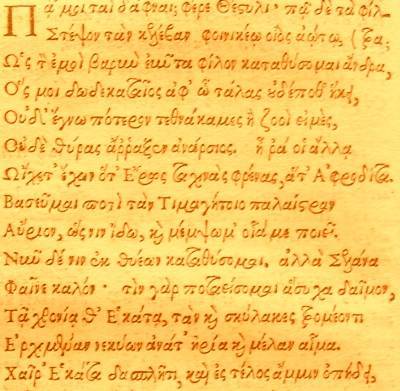 Πᾷ μοι ταὶ δάφναι; φέρε Θέστυλι· πᾷ δὲ τὰ φίλ-
Στέψον τὰν κελέβαν φοινικέῳ οἰὸς ἀώτῳ, (τρα;
Ὡς τ' ἐμοὶ βαρὺν εὖντα φίλον καταθύσομαι ἄνδρα,
Ὅς μοι δωδεκαταῖος ἀφ' ὧ τάλας οὐδέποθ' ἥκει,
Οὐδ' ἔγνω πότερον τεθνάκαμες ἢ ζοοὶ εἰμὲς,
Οὐδὲ θύρας ἄῤῥαξεν ἀνάρσιος. ἦ ῥά οἱ ἄλλᾳ
Ὤχετ' ἔχων ὅτ' Ἔρως ταχινὰς φρένας, ἅτ' Ἀφροδίτα.
Βασεῦμαι ποτὶ τὰν Τιμαγήτοιο παλαίστραν
Αὔριον, ὥς νιν ἴδω, καὶ μέμψωμ' οἷά με ποιεῖ.
Νῦν δέ νιν ἐκ θυέων καταθύσομαι. ἀλλὰ Σελάνα
Φαῖνε καλόν· τὶν γὰρ ποταείσομαι ἅσυχα δαῖμον,
Τᾷ χθονίᾳ θ' Ἑκάτᾳ, τὰν καὶ σκύλακες τρομέοντι
Ἐρχομέναν νεκύων ἀνά τ' ἠρία καὶ μέλαν αἷμα.
Χαῖρ' Ἑκάτα δασπλῆτι, καὶ ἐς τέλος ἄμμιν ὀπήδει,